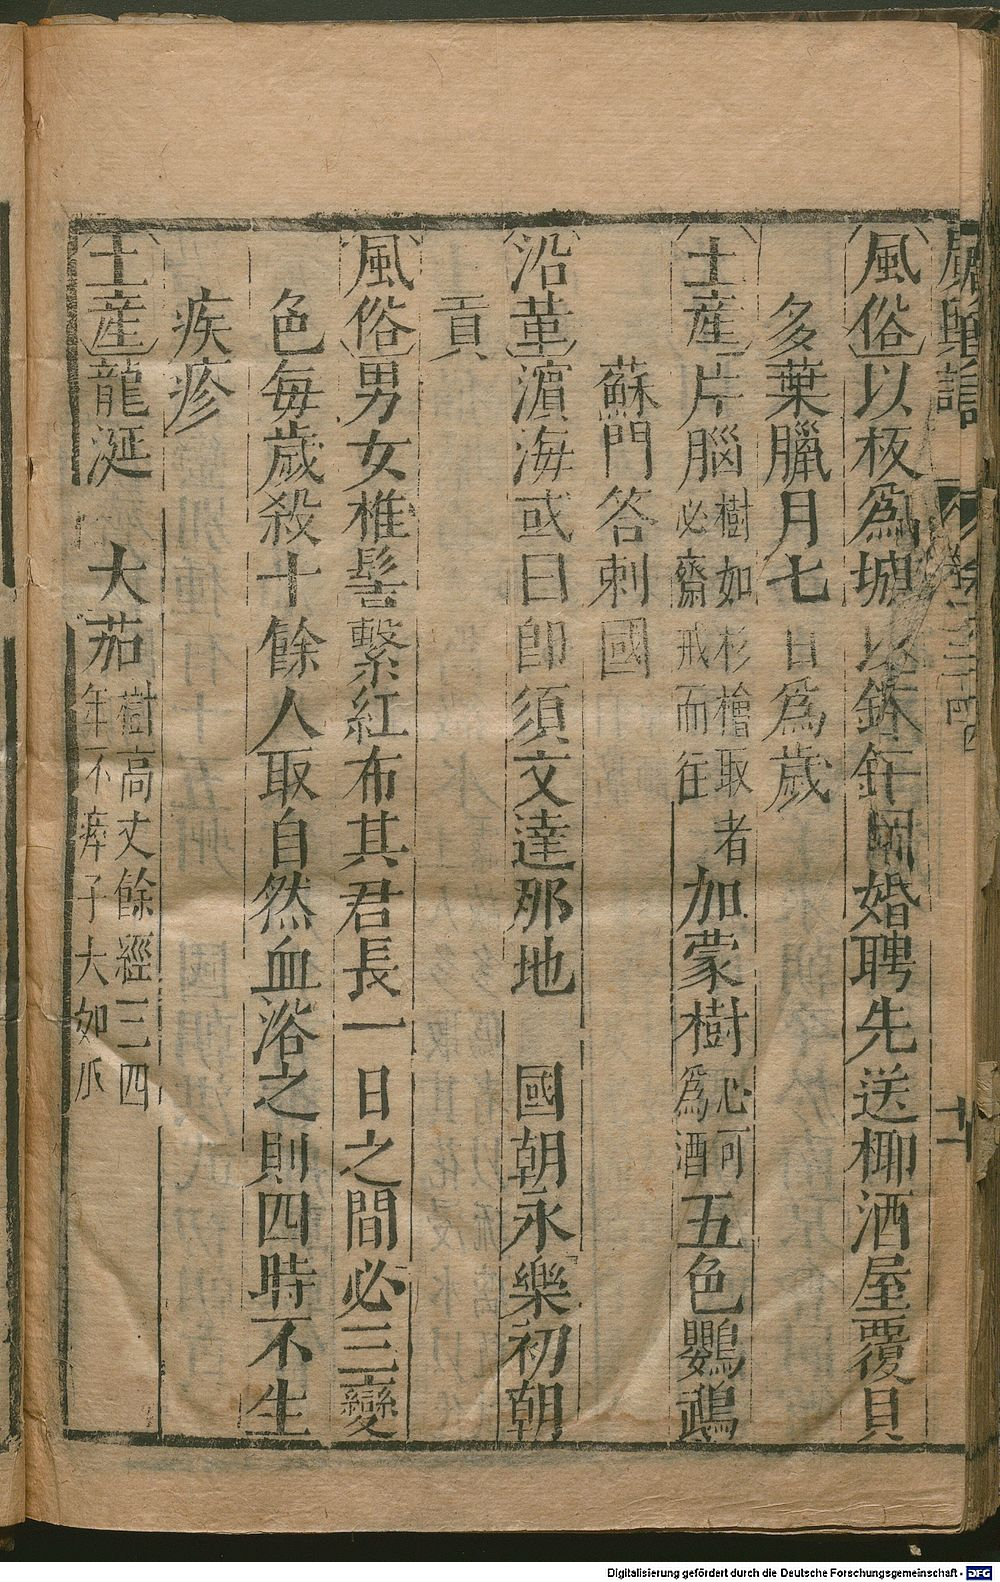 廣輿記 卷二十四 十一
風俗以板爲城以鉢釬固婚聘先送椰酒屋覆貝
多葉臘月七日爲歲
土産片腦樹如杉檜取者必齋戒而往加蒙樹心可爲酒五色鸚鵡
蘇門答剌國
沿革濵海或曰卽須文達那地 國朝永樂初朝
貢
風俗男女椎髻繫紅布其君長一日之間必三變
色每歲殺十餘人取自然血浴之則四時不生
疾疹
土産龍涎 大茄樹高丈餘經三四年不瘁子大如瓜
Digitalisierung gefördert durch die Deutsche Forschungsgemeinschaft - DFG